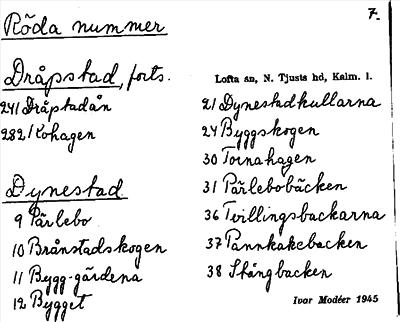 Röda nummer
7.
Dråpstad, forts.
Lofta sn, N. Tjusts hd, Kalm. l.
241 Dråpstadån
282 Kohagen
Dynestad
9 Pärlebo
10 Brånstadskogen
11 Bygg-gärdena
12 Bygget
21 Dynestadkullarna
24 Byggskogen
30 Tornahagen
31 Pärlebobäcken
36 Tvillingsbackarna
37 Pannkakebacken
38 Stångbacken
Ivar Modéer 1945